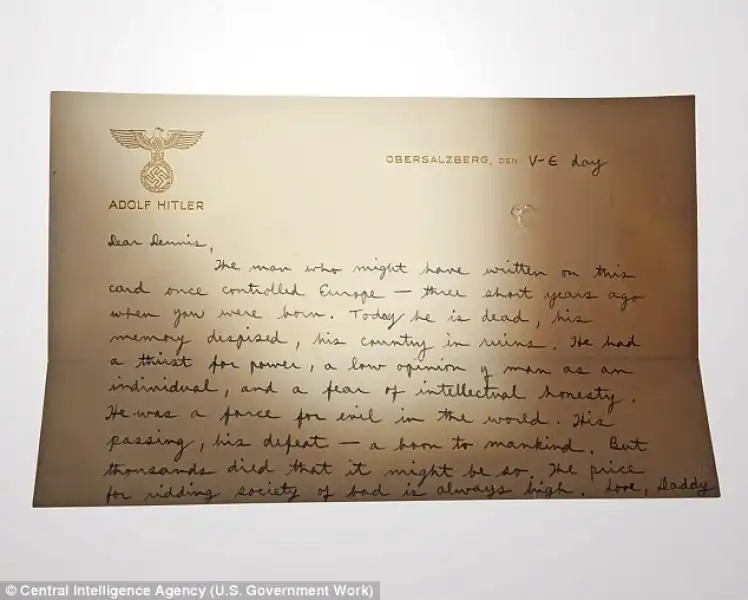 ADOLF HITLER
OBERSALZBERG, DEN V-E day
Dear Dennis,
The man who might have written on this
card once controlled Europe — three short years ago
when you were born. Today he is dead, his
memory dispised, his country in ruins. He had
a thirst for power, a low opinion of man as an
individual, and a fear of intellectual honesty.
He was a force for evil in the world. His
passing, his defeat — a boon to mankind. But
thousands died that it might be so. The price
for ridding society of bad is always high. Love, Daddy
© Central Intelligence Agency (U.S. Government Work)